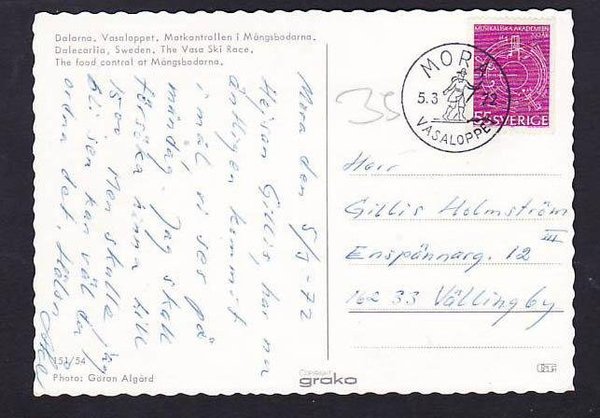 Dalarna. Vasaloppet. Matkontrollen i Mångsbodarna.
Dalecarlia, Sweden. The Vasa Ski Race.
The food control at Mångsbodarna.
Mora den 5/3-72
Hejsan Gillis, har nu
äntligen kommit
i mål, vi ses på
måndag. Jag skall
försöka hinna till
15.00 Men skulle jag
bli sen kan väl du
ordna det. Hälsn
151/54
Photo: Göran Algård
COPYRIGHT
grako
35
MORA
5.3 72
VASALOPPET
MUSIKALISKA AKADEMIEN
200 ÅR
55 SVERIGE
Herr
Gillis Holmström
Enspännarg. 12 III
162 33 Vällingby